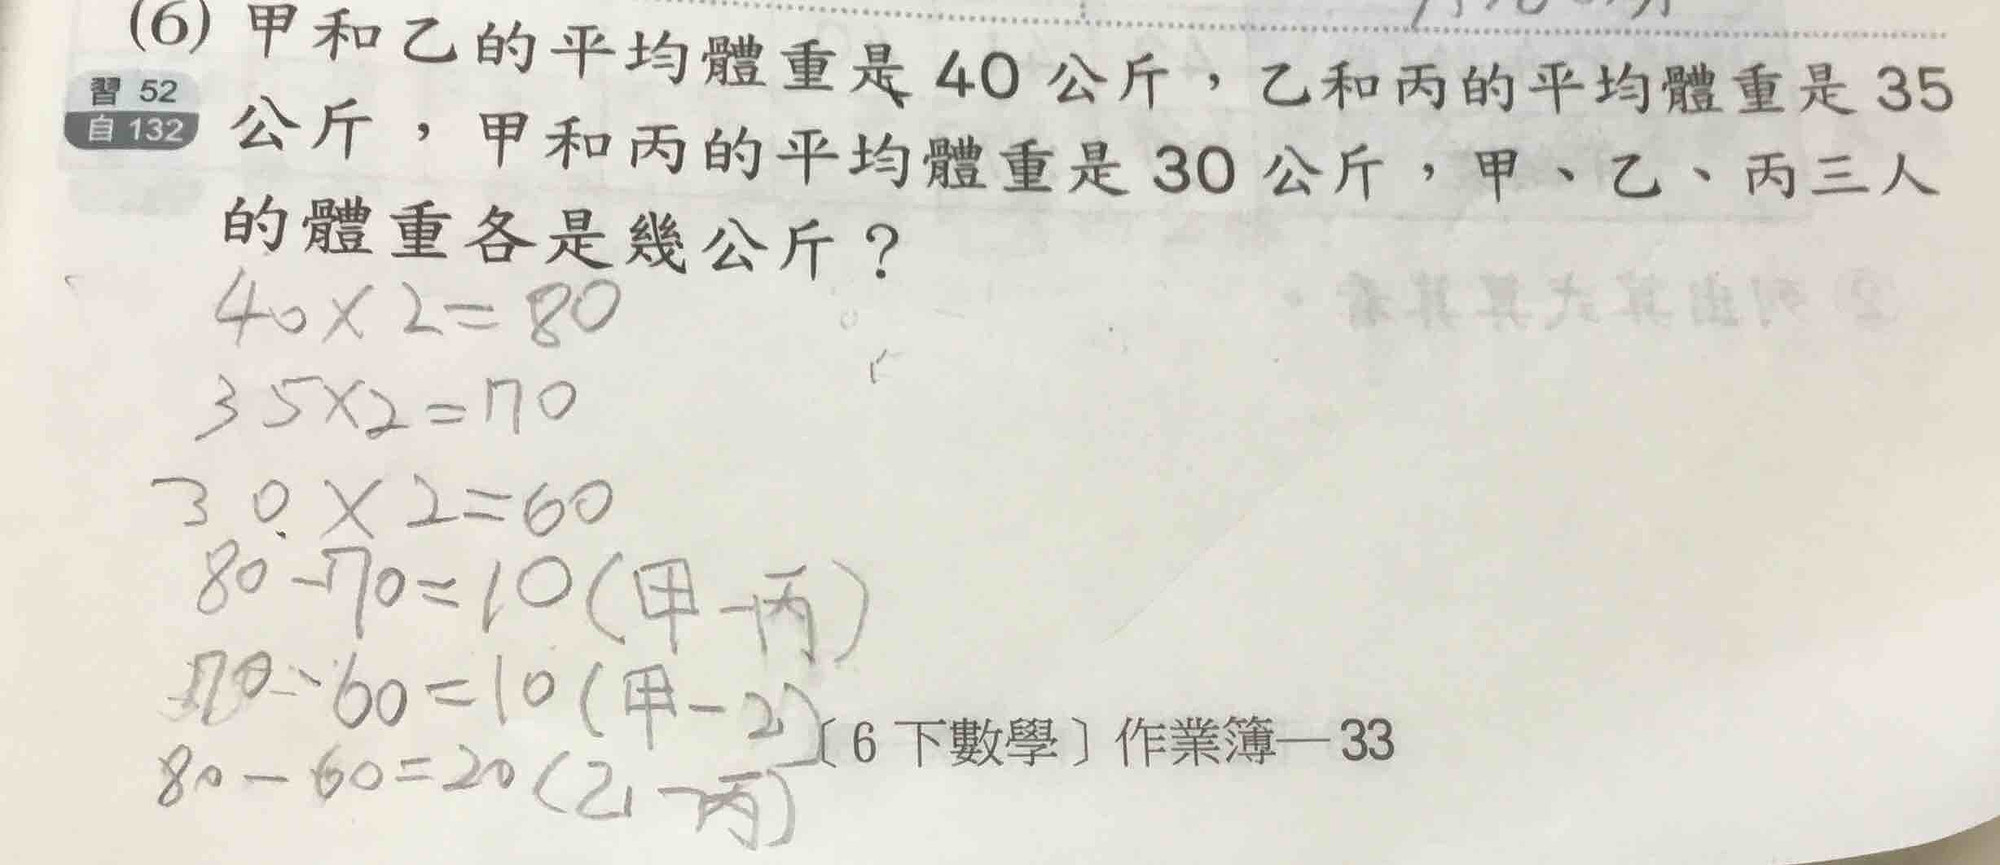 (6) 甲和乙的平均體重是 40 公斤，乙和丙的平均體重是 35
習 52
自 132
公斤，甲和丙的平均體重是 30 公斤，甲、乙、丙三人
的體重各是幾公斤？
40×2=80
35×2=70
30×2=60
80-70=10(甲-丙)
70-60=10(甲-乙)
80-60=20(乙-丙)
〔6 下數學〕作業簿—33